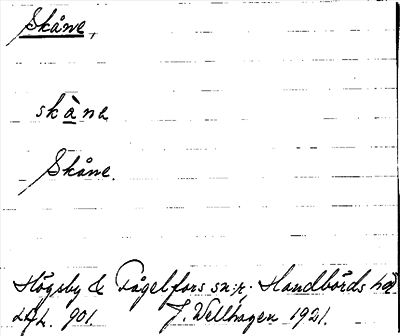 Skåne,
skàne
Skåne.
Högsby & Fågelfors sn:r. Handbörds hd
Lfk. 901. J. Wellhagen 1921.